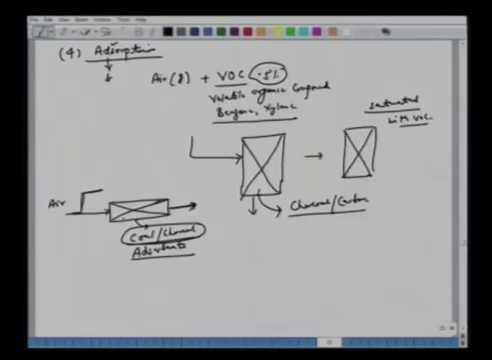 (4) Adsorption
Air (g) + VOC .5%
Volatile organic Compound
Benzene, Xylene
saturated
with VOC
Air
Charcoal/Carbon
Coal/Charcoal
Adsorbents